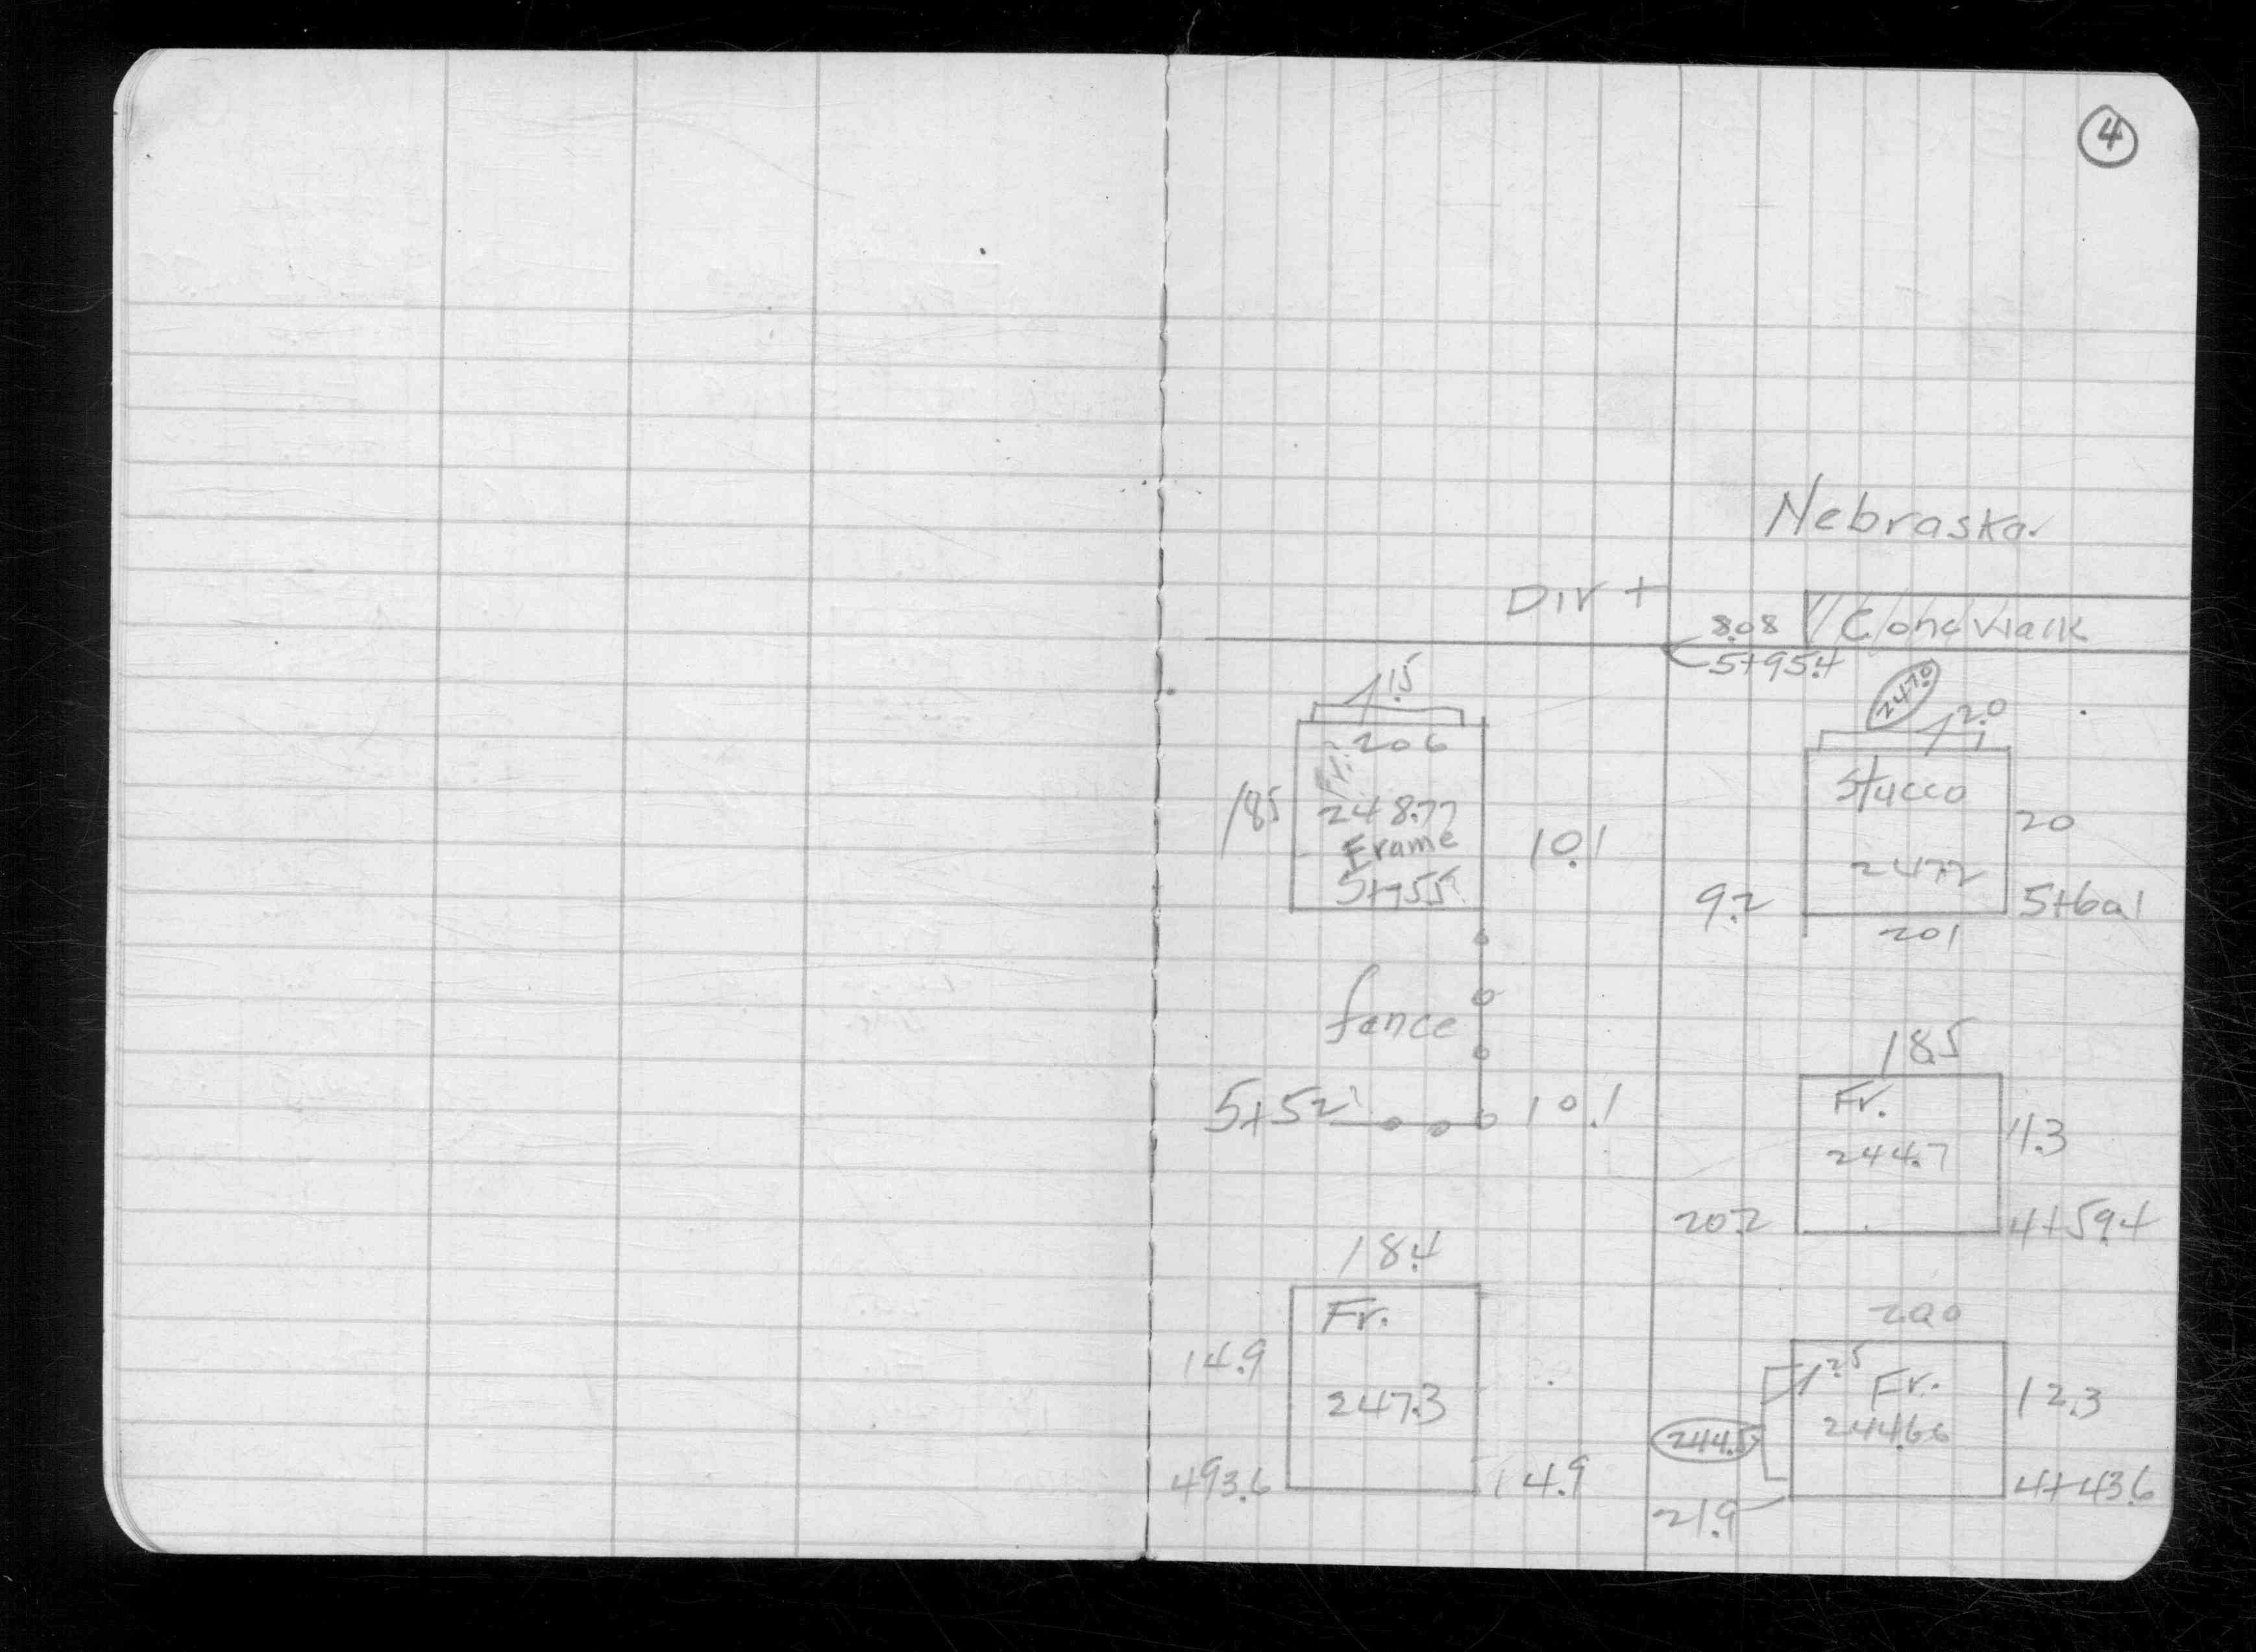 4
Nebraska
Dirt
8.08
Conc Walk
5+95.4
1.5
247.0
2.0
206
Stucco
Fr.
185
248.77
20
Frame
10.1
247.2
5+55
9.2
5+60.1
201
fence
18.5
5+52
10.1
Fr.
11.3
244.7
20.2
4+59.4
18.4
20.0
Fr.
2.5
14.9
Fr.
12.3
247.3
244.66
244.5
493.6
14.9
4+43.6
21.9